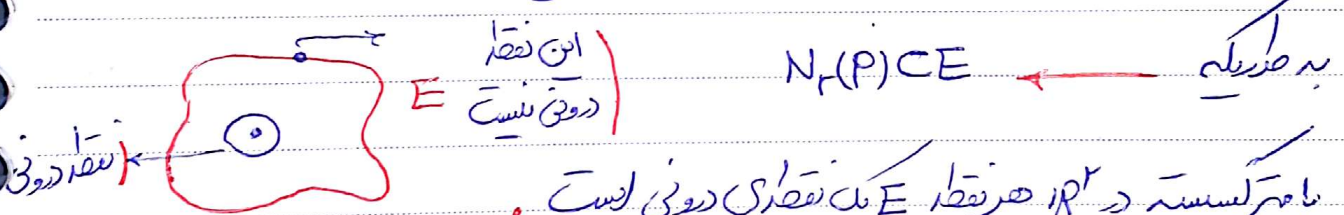 به طوریکه ← N_r(P) ⊂ E
این نقطه
درونی نیست
E
نقطه درونی
با متر گسسته در R² هر نقطه E یک نقطه‌ی درونی است.